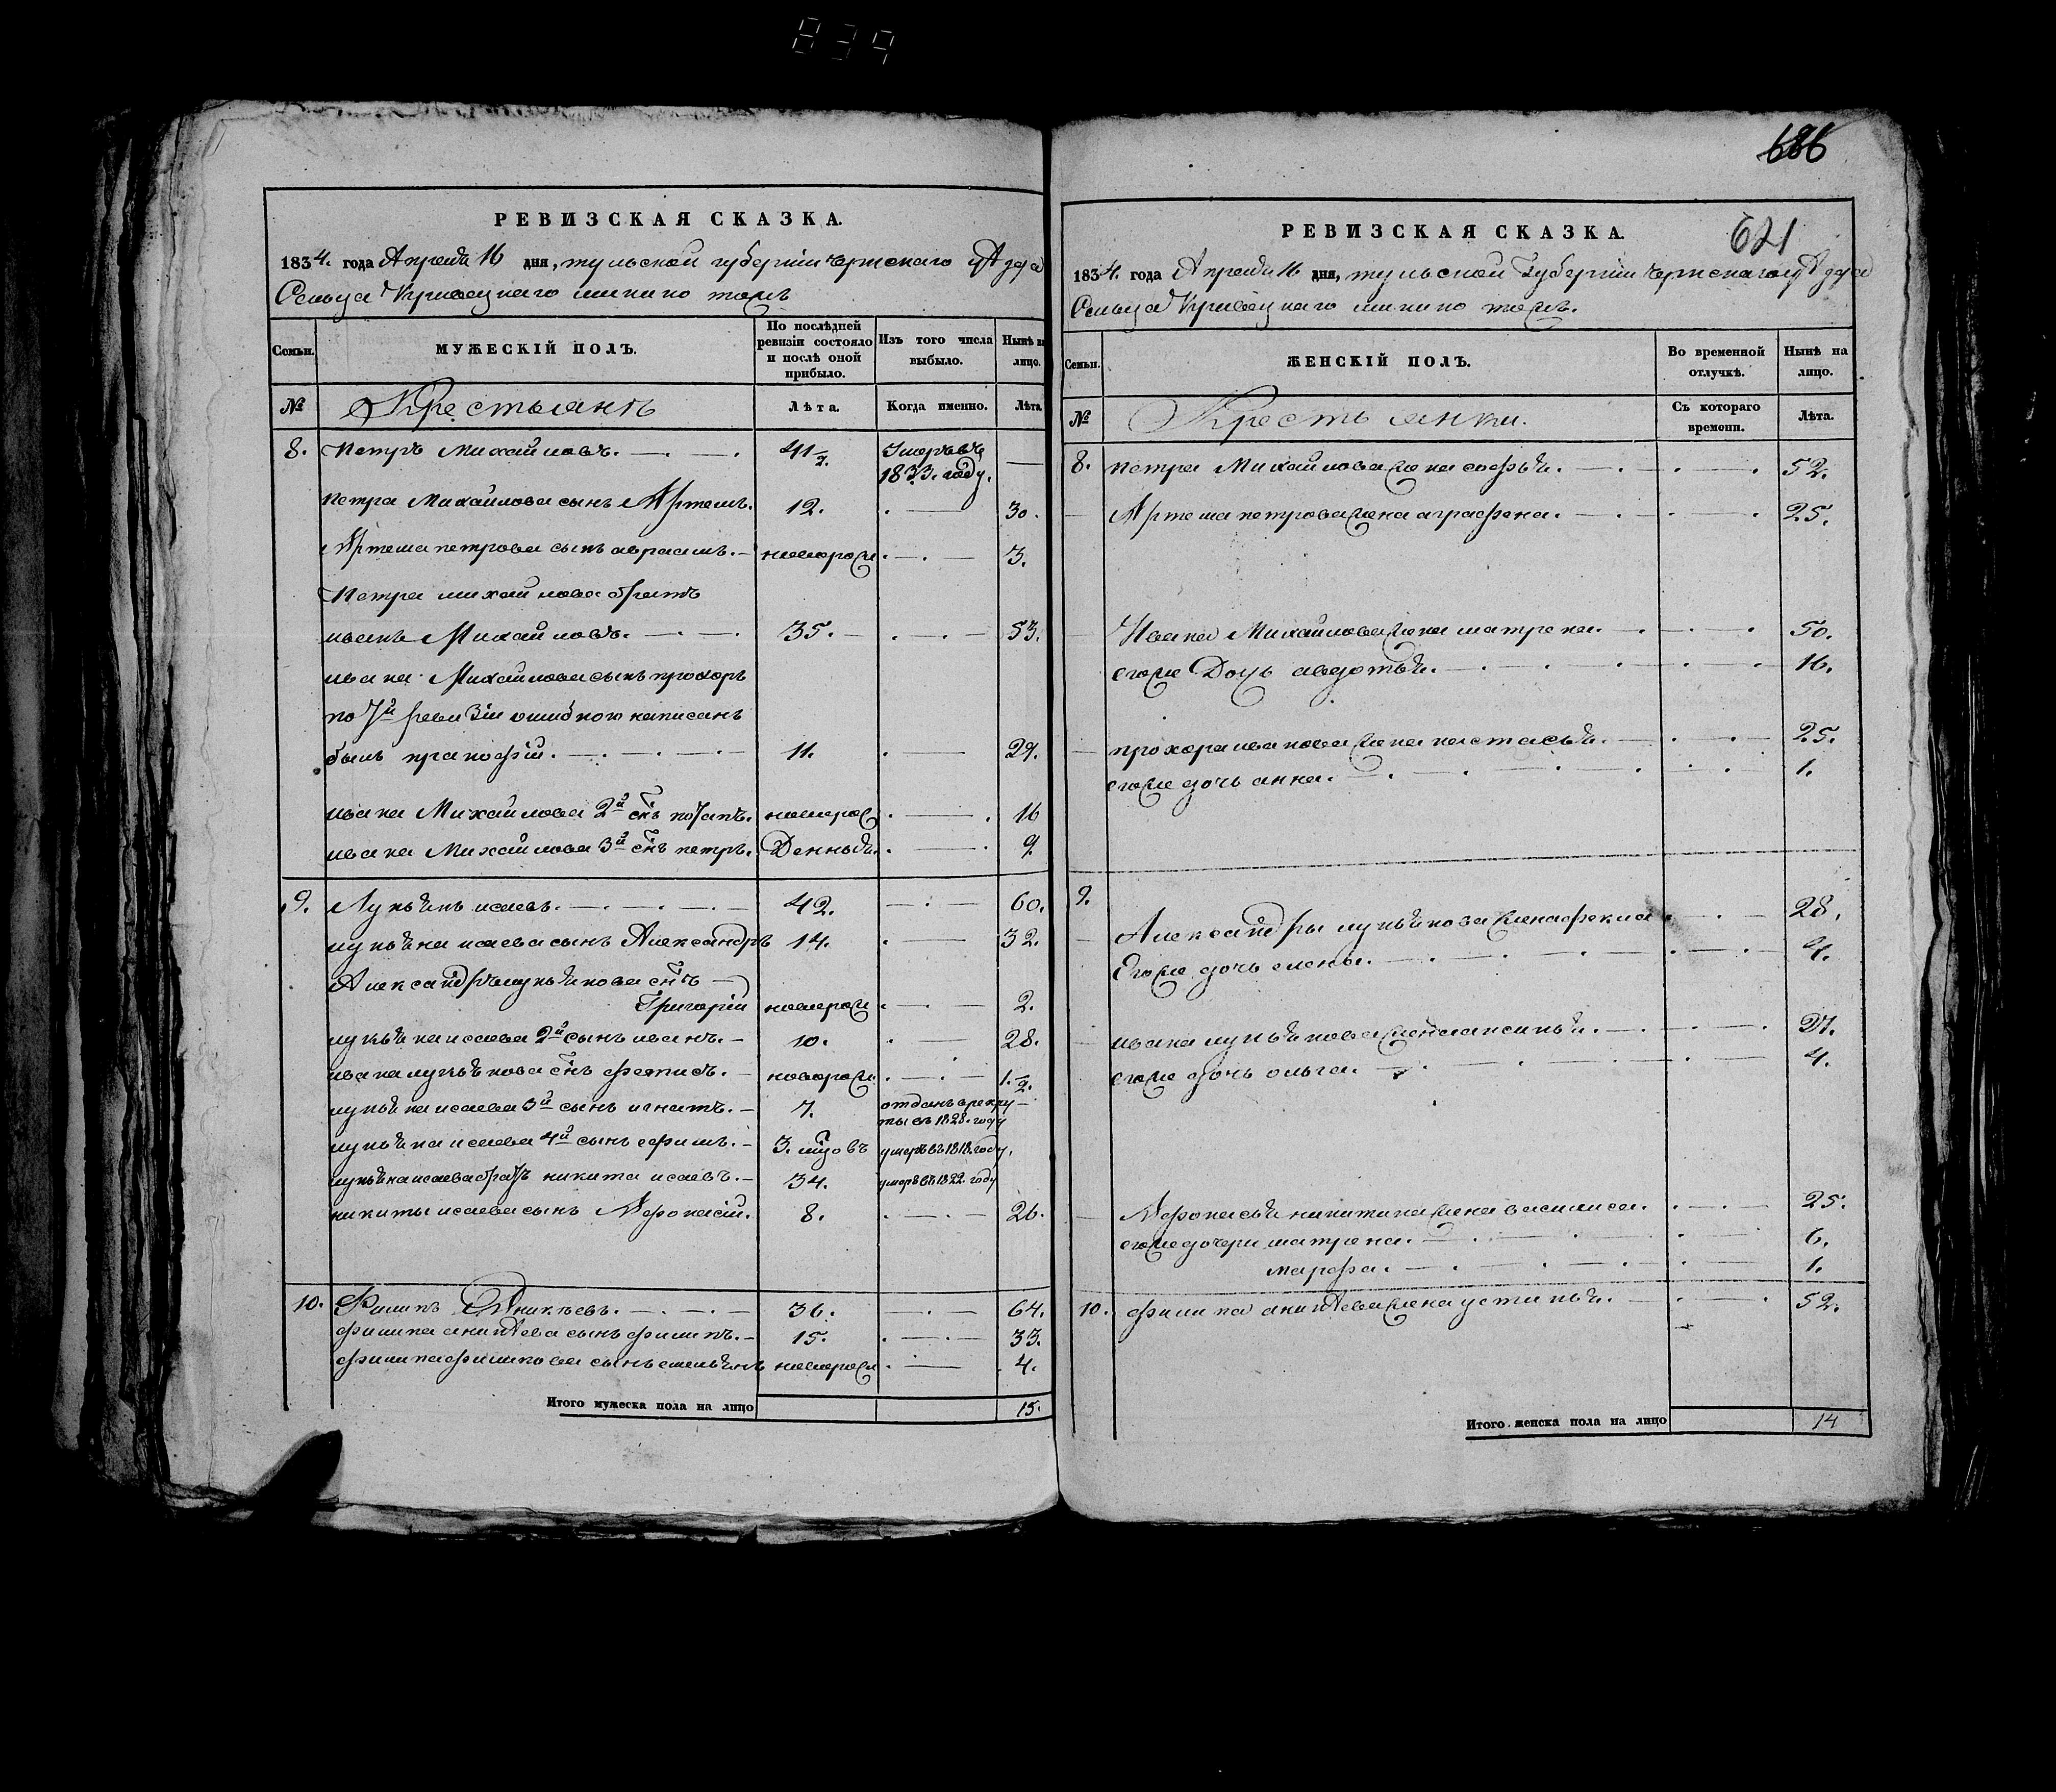 839
РЕВИЗСКАЯ СКАЗКА.
1834. года Апреля 16 дня, тульской губернiи чернскаго уѣзда
Сельца Кривецкаго
Семьи.
МУЖЕСКIЙ ПОЛЪ.
По послѣдней ревизiи состояло и послѣ оной прибыло.
Изъ того числа выбыло.
Нынѣ на лицо.
№
Крестьянъ
Лѣта.
Когда именно.
Лѣта
8. Петръ Михайловъ. 41 1/2. Умеръ въ
1833. году.
петра Михайлова сынъ Артемъ. 12. 30.
Артема петрова сынъ авраамъ. новорож 3.
Петра михайлова братъ
иванъ Михайловъ. 35. 53.
ивана Михайлова сынъ прохоръ
по 7й ревизiи ошибкою написанъ
былъ пракофiй. 11. 29.
ивана Михайлова 2й снъ потапъ. новорож 16
ивана Михайлова 3й снъ петръ. 9
9. Лукьянъ исаевъ. 42. 60.
лукьяна исаева сынъ Александръ 14. 32.
Александръ лукьянова снъ
Григорiй новорож 2.
лукьяна исаева 2й сынъ иванъ. 10. 28.
ивана лукьянова снъ фетисъ. новорож. 1 1/2.
лукьяна исаева 3й сынъ игнатъ. 7. отданъ в рекру
ты въ 1828. году
лукьяна исаева 4й сынъ ефимъ. 3. мцовъ умеръ въ 1818. году.
лукьяна исаева братъ никита исаевъ. 34. умеръ въ 1822. году
никиты исаева сынъ Афонасiй. 8. 26.
10. Филипъ Аникѣевъ. 36. 64.
филипа аникѣева сынъ филипъ. 15. 33.
филипа филипова сынъ емельянъ новорож 4.
Итого мужеска пола на лицо 15.
686
621
РЕВИЗСКАЯ СКАЗКА.
1834. года Апреля 16 дня, тульской Губернiи чернскаго уѣзда
Сельца Кривецкаго
Семьи.
ЖЕНСКIЙ ПОЛЪ.
Во временной отлучкѣ.
Нынѣ на лицо.
№
Крестьянки.
Съ котораго времени.
Лѣта.
8. петра Михайлова жена софья. 52.
Артема петрова жена аграфена. 25.
Ивана Михайлова жена матрена. 50.
егоже Дочь авдотья. 16.
прохора иванова жена настасья. 25.
егоже дочь анна. 1.
9.
Александры лукьянова жена фекла 28.
Егоже дочь елена.
ивана лукьянова жена аксинья. 27.
егоже дочь ольга. 4.
Афонасья никитина жена василиса. 25.
егоже дочери матрена. 6.
марфа. 1.
10. филипа аникѣева жена устинья. 52.
Итого женска пола на лицо 14